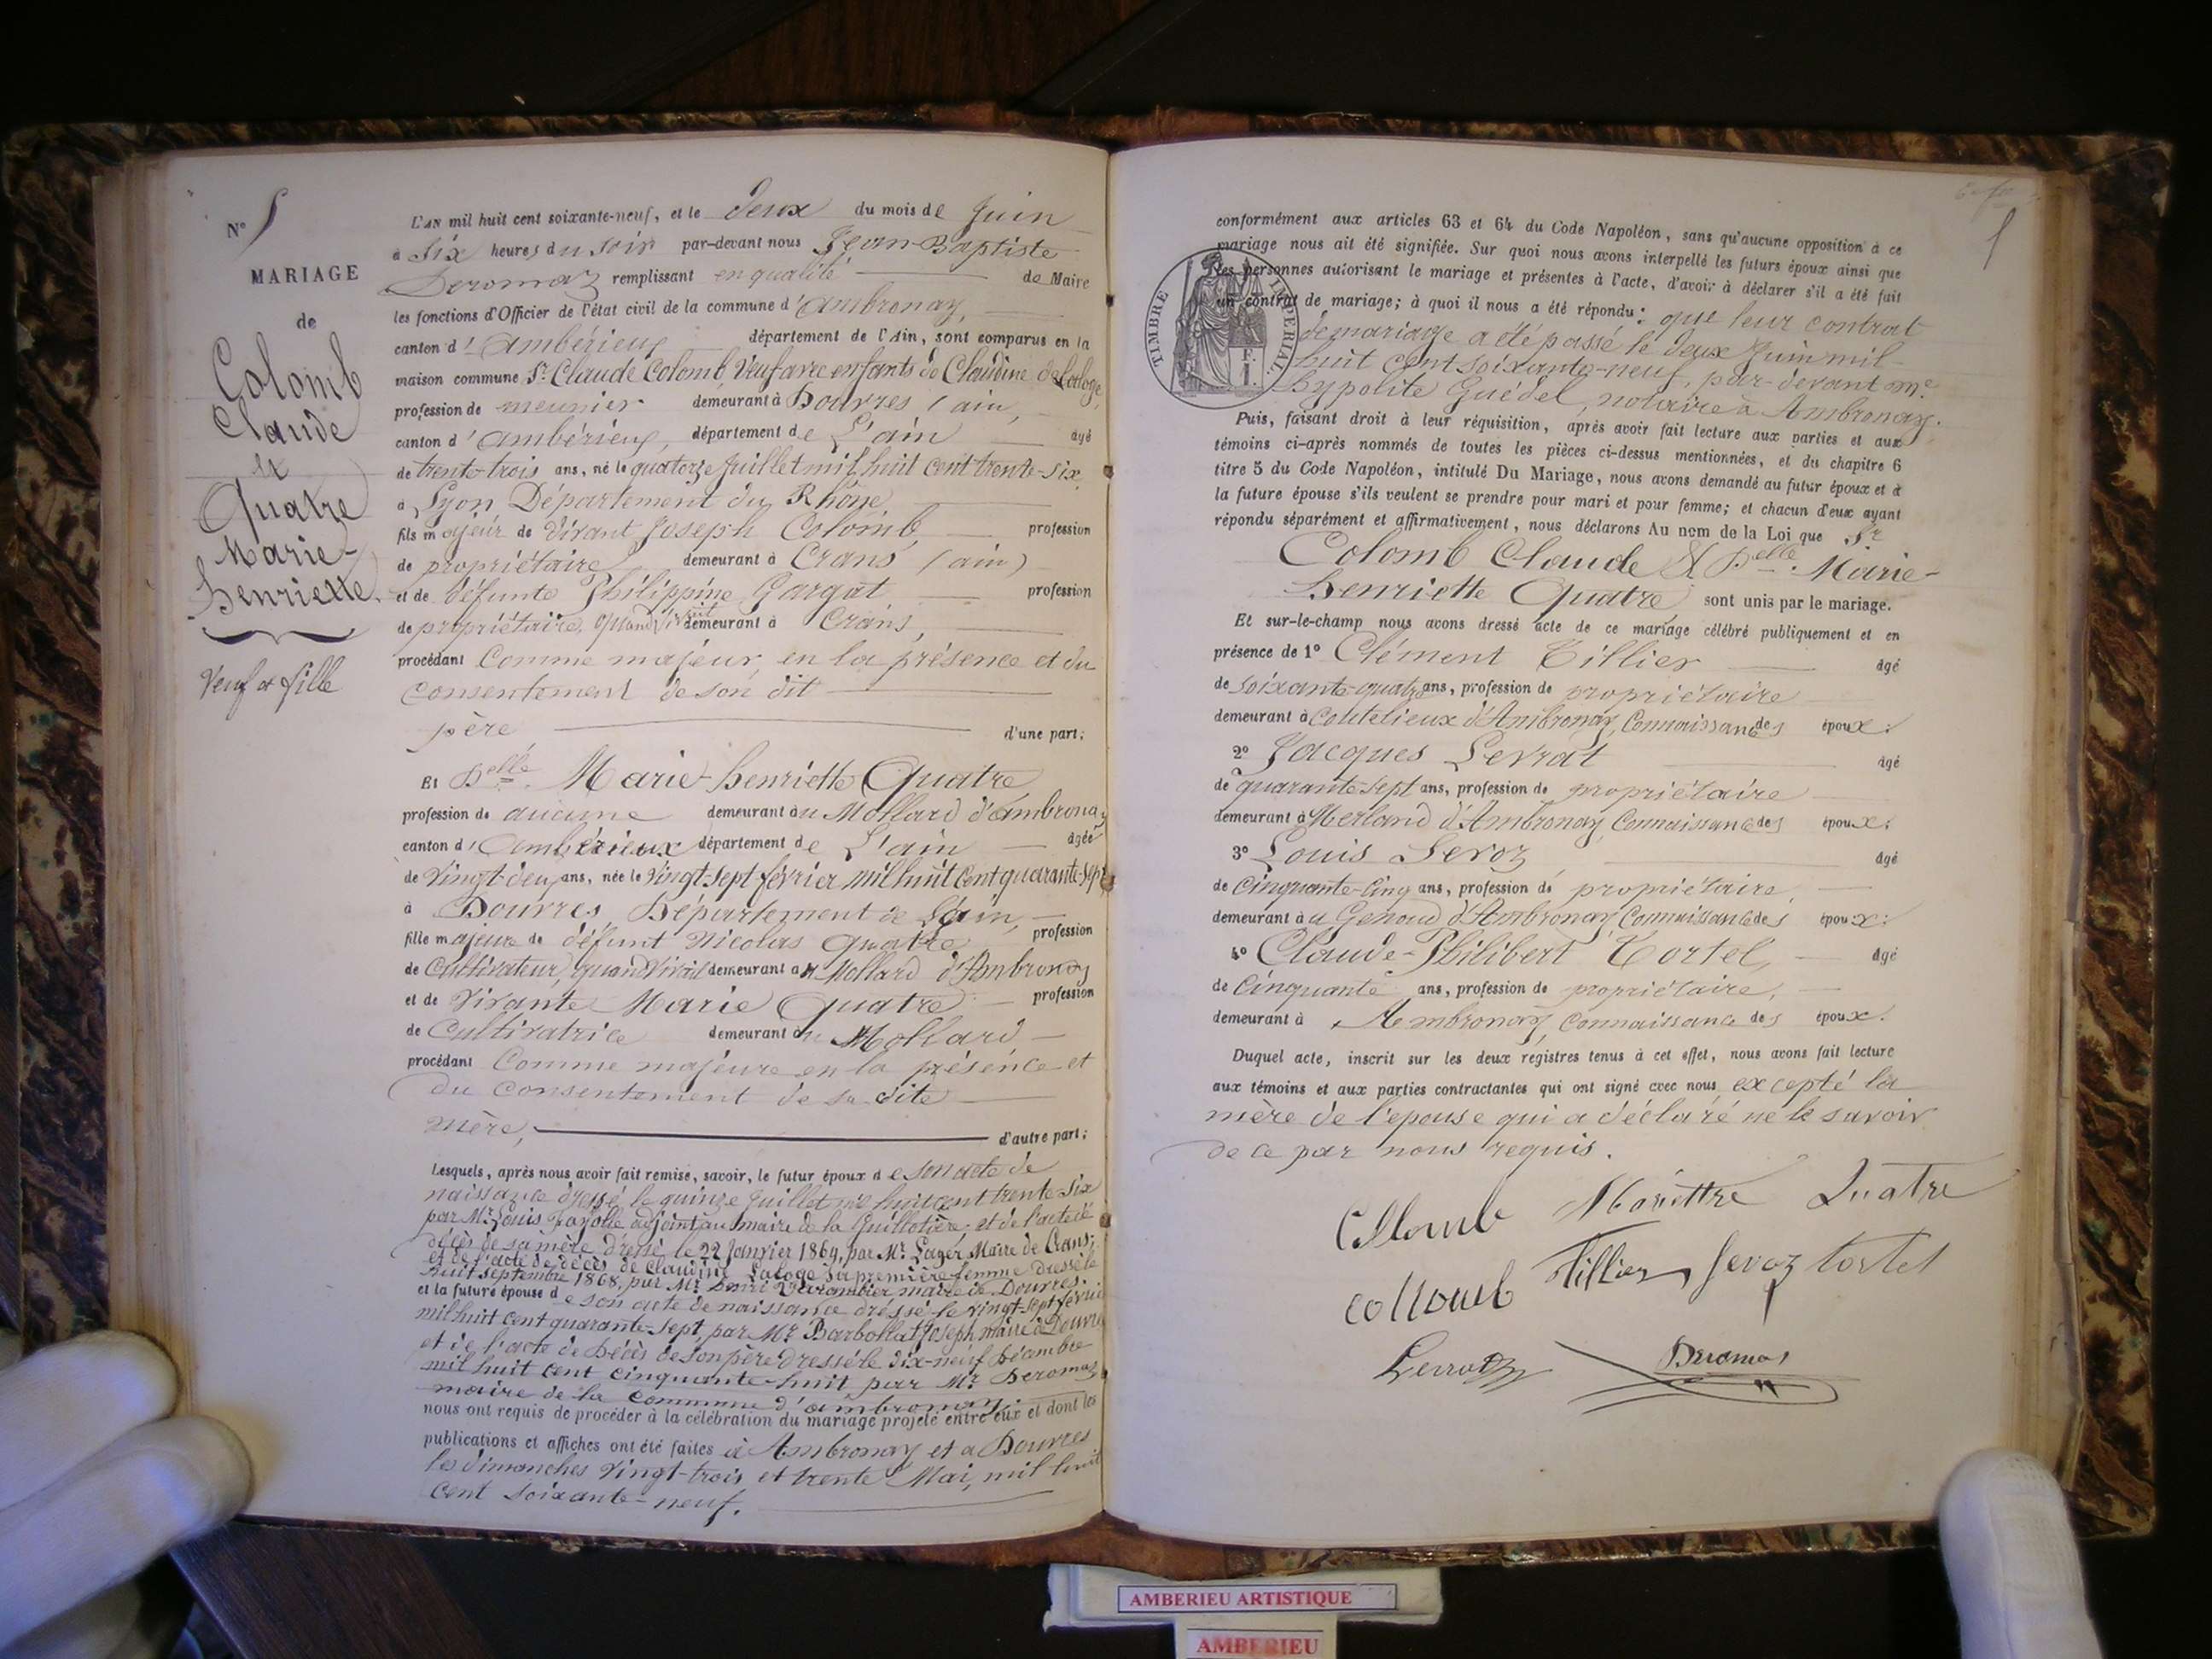 N° 5
MARIAGE
de
Colomb
Claude
et
Quatre
Marie-
henriette.
Veuf et fille
L'AN mil huit cent soixante-neuf, et le deux du mois de Juin
à Six heures du soir par-devant nous Jean-Baptiste
Deromaz remplissant en qualité de Maire
les fonctions d'Officier de l'état civil de la commune d'Ambronay,
canton d'Ambérieux département de l'Ain, sont comparus en la
maison commune Sr Claude Colomb, Veuf avec enfants de Claudine Laloge,
profession de meunier demeurant à Douvres (ain,
canton d'ambérieux, département de L'ain âgé
de trente-trois ans, né le quatorze Juillet mil huit cent trente-six
à Lyon Département du Rhône
fils majeur de vivant Joseph Colomb, profession
de propriétaire demeurant à Crans (ain)
et de défunte Philippine Gargat profession
de propriétaire, quand vivait demeurant à Crans,
procédant Comme majeur, en la présence et du
consentement de son dit
père d'une part;
Et Delle Marie-henriette Quatre
profession de aucune demeurant au Mollard d'ambronay
canton d'Ambérieux département de L'ain âgée
de Vingt-deux ans, née le Vingt-sept février mil huit Cent quarante-sept
à Douvres, Département de L'ain,
fille majeure de défunt Nicolas Quatre profession
de Cultivateur, quand Vivait demeurant au Mollard d'Ambronay
et de Vivante Marie Quatre profession
de Cultivatrice demeurant au Mollard
procédant Comme majeure en la présence et
du Consentement de sa dite
mère, d'autre part;
Lesquels, après nous avoir fait remise, savoir, le futur époux de son acte de
naissance dressé le quinze Juillet mil huit cent trente-six
par Mr Louis adjoint au maire de la Guillotière et de l'acte de
décès de sa mère dressé le 22 Janvier 1869, par Mr Lager Maire de Crans;
et de l'acte de décès de Claudine Laloge sa première femme dressé le
huit septembre 1868, par Mr maire de Douvres.
et la future épouse de son acte de naissance dressé le vingt-sept février
mil huit cent quarante-sept, par Mr Barbollat Joseph maire à Douvres
et de l'acte de Décès de son père dressé le dix-neuf Décembre
mil huit cent cinquante-huit par Mr Deromaz
maire de la commune d'ambronay.
nous ont requis de procéder à la célébration du mariage projeté entre eux et dont les
publications et affiches ont été faites à Ambronay et à Douvres
les dimanches vingt-trois et trente Mai, mil huit
cent soixante-neuf.
5
conformément aux articles 63 et 64 du Code Napoléon, sans qu'aucune opposition à ce
mariage nous ait été signifiée. Sur quoi nous avons interpellé les futurs époux ainsi que
les personnes autorisant le mariage et présentes à l'acte, d'avoir à déclarer s'il a été fait
un contrat de mariage; à quoi il nous a été répondu: que leur contrat
de mariage a été passé le deux Juin mil
huit cent soixante-neuf, par-devant me
hypolite Guédel, notaire à Ambronay.
TIMBRE IMPERIAL.
Puis, faisant droit à leur réquisition, après avoir fait lecture aux parties et aux
témoins ci-après nommés de toutes les pièces ci-dessus mentionnées, et du chapitre 6
titre 5 du Code Napoléon, intitulé Du Mariage, nous avons demandé au futur époux et à
la future épouse s'ils veulent se prendre pour mari et pour femme; et chacun d'eux ayant
répondu séparément et affirmativement, nous déclarons Au nom de la Loi que Sr
Colomb Claude & Delle Marie-
henriette Quatre sont unis par le mariage.
Et sur-le-champ nous avons dressé acte de ce mariage célébré publiquement et en
présence de 1° Clément Tillier âgé
de soixante-quatre ans, profession de propriétaire
demeurant à Coutelieux d'Ambronay, Connaissance des époux:
2° Jacques Levrat âgé
de quarante-sept ans, profession de propriétaire
demeurant à Merland d'Ambronay, Connaissance des époux:
3° Louis Servoz âgé
de Cinquante-Cinq ans, profession de propriétaire,
demeurant à u Genoud d'Ambronay, Connaissance des époux:
4° Claude-Philibert Tortel, âgé
de Cinquante ans, profession de propriétaire,
demeurant à Ambronay, Connaissance des époux.
Duquel acte, inscrit sur les deux registres tenus à cet effet, nous avons fait lecture
aux témoins et aux parties contractantes qui ont signé avec nous, excepté la
mère de l'epouse qui a déclaré ne le savoir
de ce par nous requis.
Collomb Mariettre Quatre
Collomb Tillier Servoz tortel
Levrat Deromas
AMBERIEU ARTISTIQUE
AMBERIEU